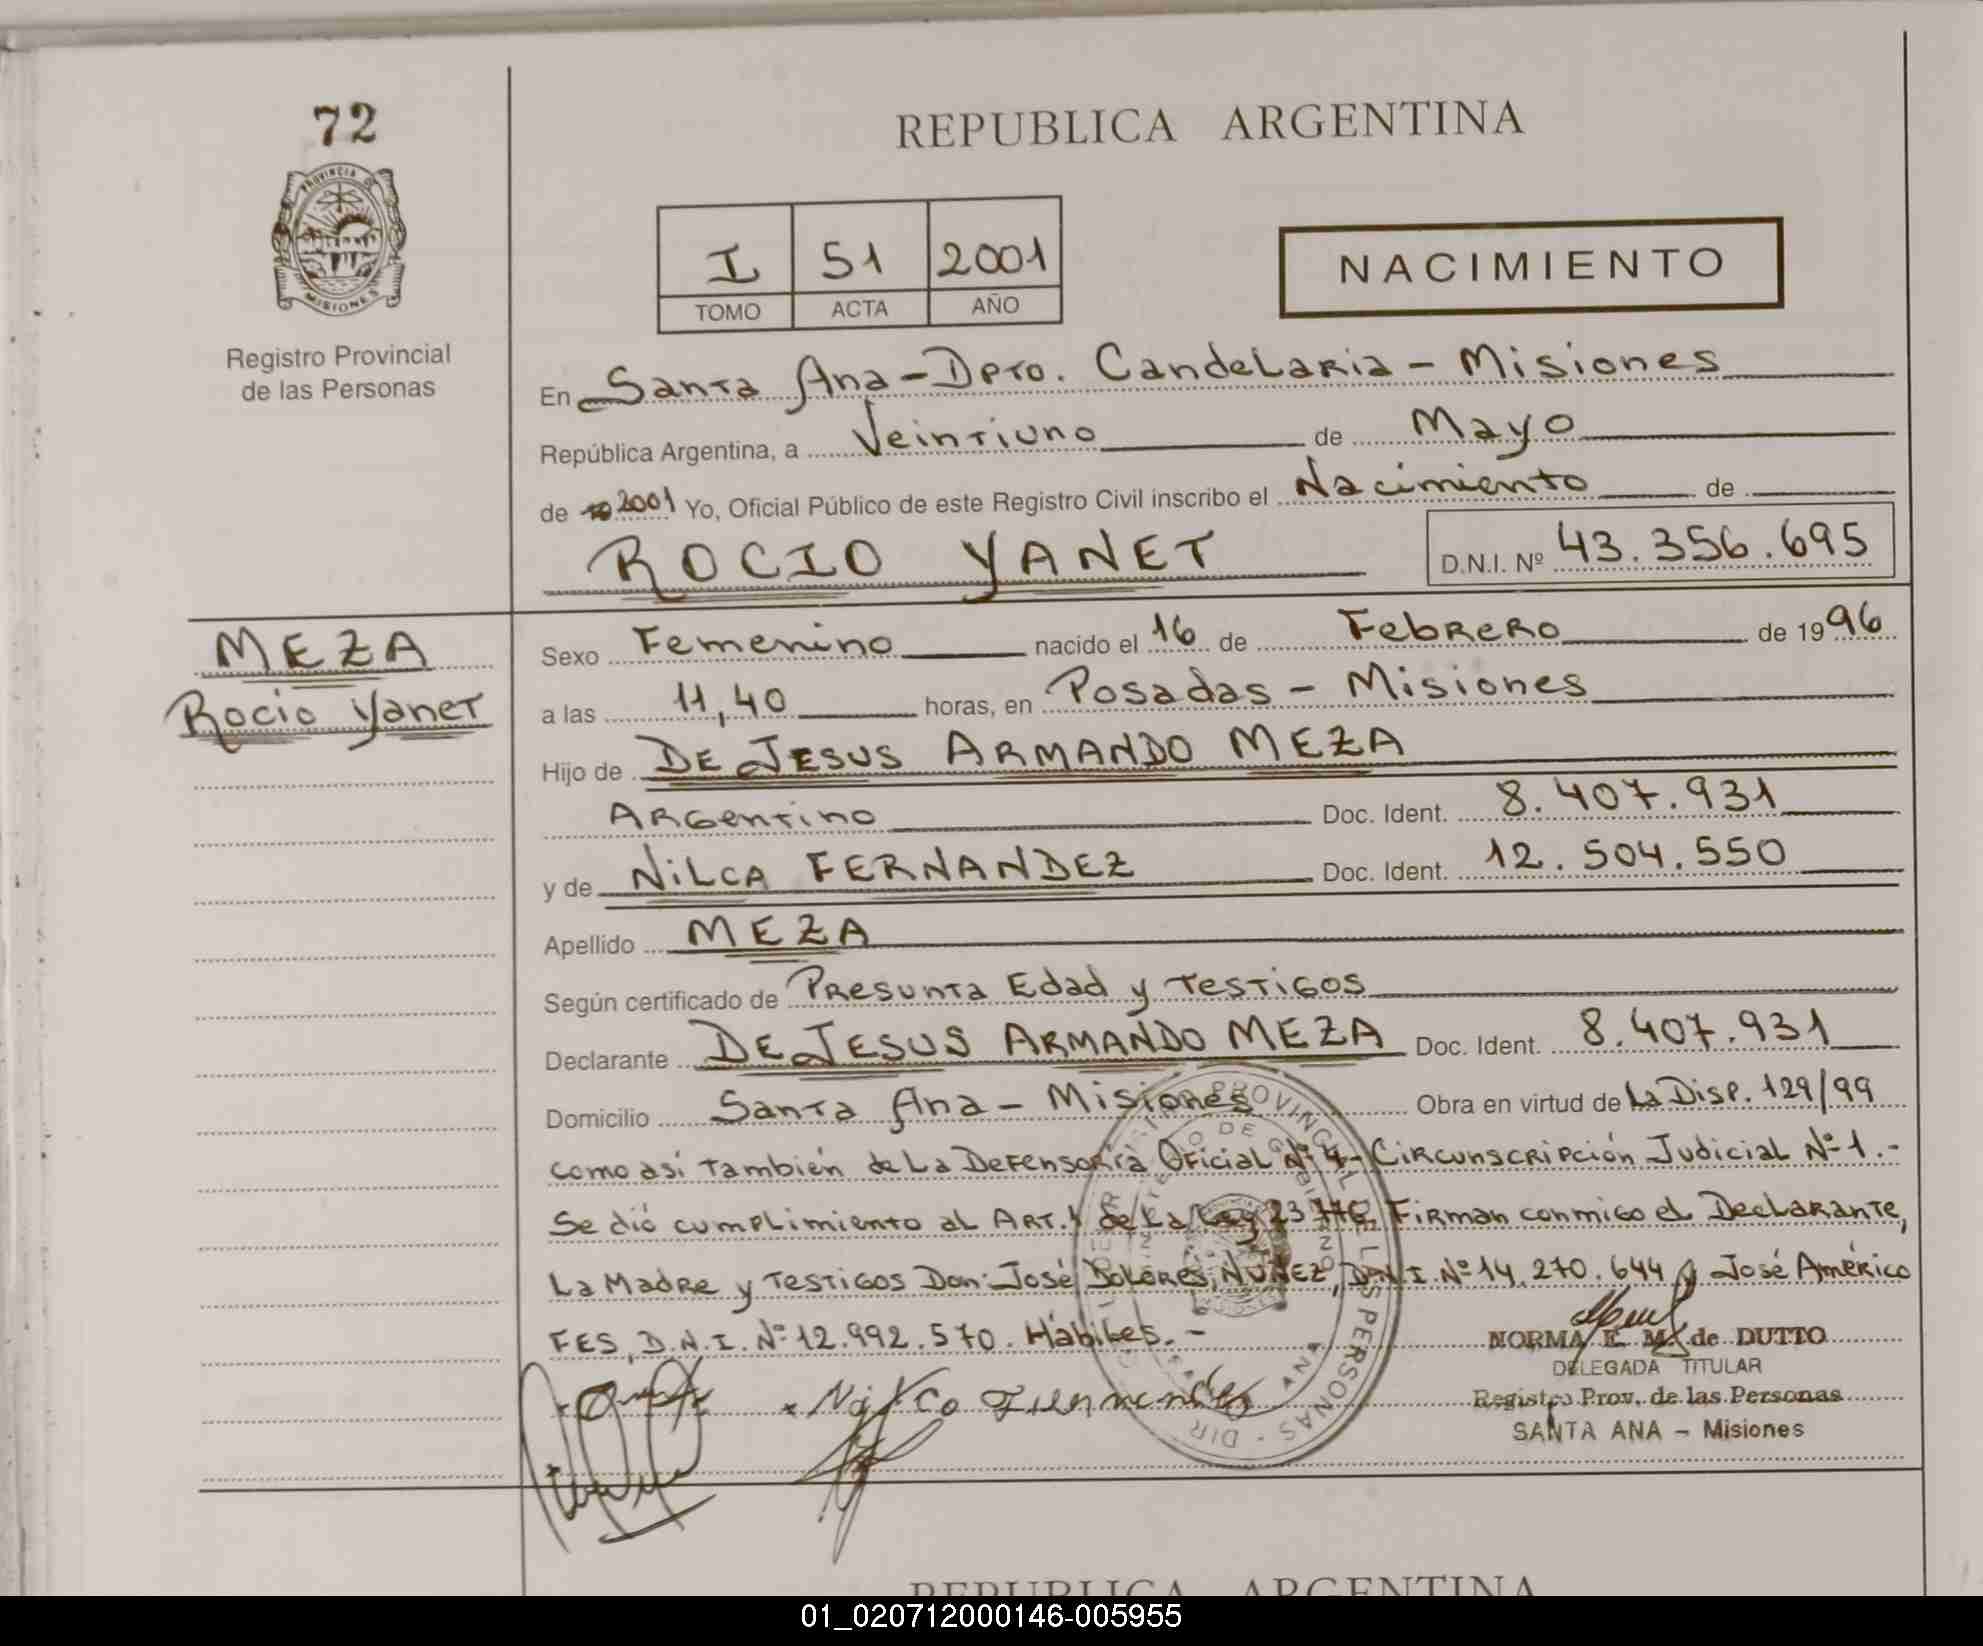 72
REPUBLICA ARGENTINA
PROVINCIA DE
MISIONES
Registro Provincial
de las Personas
I 51 2001
TOMO ACTA AÑO
NACIMIENTO
En Santa Ana - Dpto. Candelaria - Misiones
República Argentina, a Veintiuno de Mayo
de 2001 Yo, Oficial Público de este Registro Civil inscribo el Nacimiento de
ROCIO YANET D.N.I. Nº 43.356.695
MEZA
Rocio Yanet
Sexo Femenino nacido el 16 de Febrero de 1996
a las 11,40 horas, en Posadas - Misiones
Hijo de DE JESUS ARMANDO MEZA
Argentino Doc. Ident. 8.407.931
y de NILCA FERNANDEZ Doc. Ident. 12.504.550
Apellido MEZA
Según certificado de Presunta Edad y Testigos
Declarante DE JESUS ARMANDO MEZA Doc. Ident. 8.407.931
Domicilio Santa Ana - Misiones Obra en virtud de La Disp. 129/99
como así También de La Defensoría Oficial Nº 4 - Circunscripción Judicial Nº 1.-
Se dió cumplimiento al Art. de La Ley 23 Firman conmigo el Declarante,
La Madre y Testigos Don: José Dolores NUÑEZ, D.N.I. Nº 14.270.644 y José Américo
FES, D.N.I. Nº 12.992.570. Hábiles. -
NORMA E. M. de DUTTO
DELEGADA TITULAR
Registro Prov. de las Personas
SANTA ANA - Misiones
Nilca Fernandez
REPUBLICA ARGENTINA
01_020712000146-005955